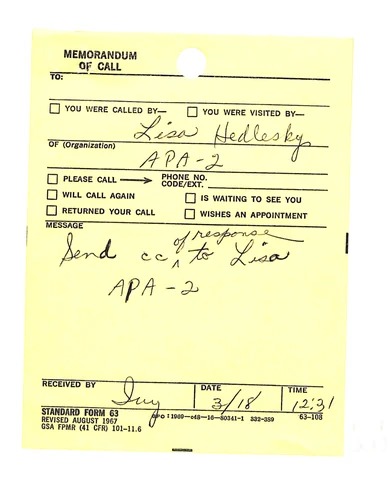 MEMORANDUM
OF CALL
TO:
YOU WERE CALLED BY— YOU WERE VISITED BY—
Lisa Hedlesky
OF (Organization)
APA-2
PLEASE CALL → PHONE NO. CODE/EXT.
WILL CALL AGAIN IS WAITING TO SEE YOU
RETURNED YOUR CALL WISHES AN APPOINTMENT
MESSAGE
of response
Send cc ^ to Lisa
APA-2
RECEIVED BY DATE TIME
3/18 12:31
STANDARD FORM 63 GPO : 1969—c48—16—80341-1 332-389 63-108
REVISED AUGUST 1967
GSA FPMR (41 CFR) 101-11.6